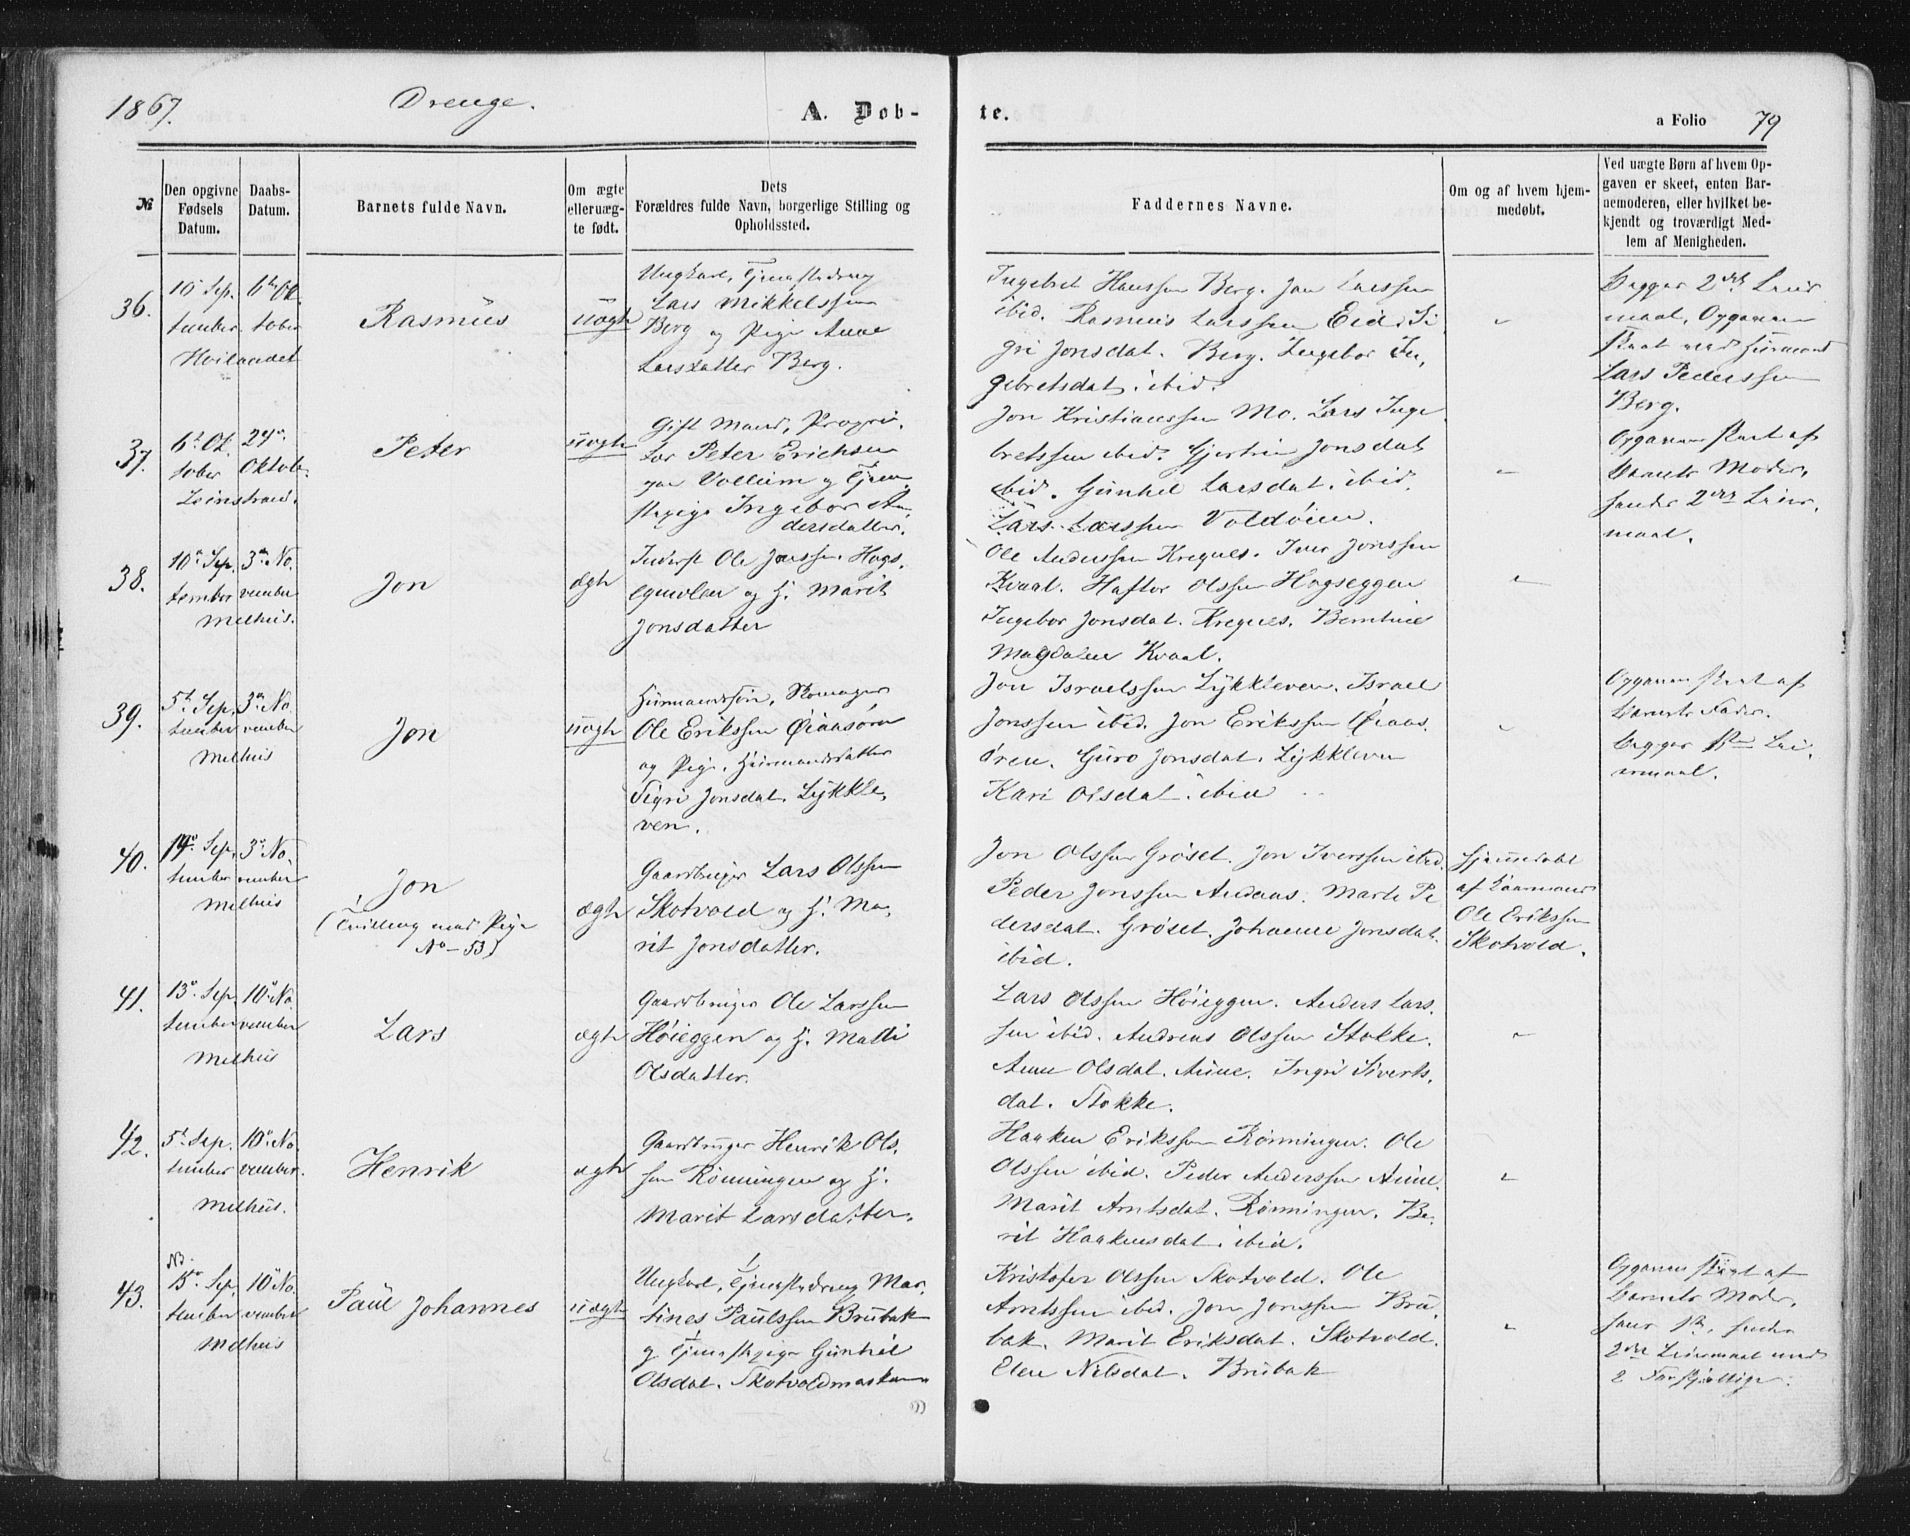 1867. Drenge. A. Døb-
te. a Folio 79
№
Den opgivne Fødsels Datum.
Daabs-Datum.
Barnets fulde Navn.
Om ægte eller uæg-te født.
Dets Forældres fulde Navn, borgerlige Stilling og Opholdssted.
Faddernes Navne.
Om og af hvem hjem-medøbt.
Ved uægte Børn af hvem Op-
gaven er skeet, enten Bar-
nemoderen, eller hvilket be-
kjendt og troværdigt Med-
lem af Menigheden.
36.
10 Sep.
tember
6te Ok-
tober
Hvilandet
Rasmus
uægte
Ungkarl, Tjenestedreng
Lars Mikkelssen
Berg og Pige Anne
Larsdatter Berg.
Ingebret Hanssen Berg. Jon Larssen
ibid. Rasmus Larssen Eid. Si
gri Jonsdat. Berg. Ingebor In,
gebretsdat. ibid.
"
Begges 2det Leier
maal, Opgaven
skeet ved Huusmand
Lars Pederssen
Berg.
37.
6te Ok.
tober
27de
Oktob.
Leinstrand.
Peter
uægte
Gift Mand, Proprie,
tær Peter Erichsen
paa Vollum og Tjene
stepige Ingebor An,
dersdatter.
Jon Kristianssen Mo. Lars Inge
bretssen ibid. Gjertrue Jonsdat
ibid. Gunhel Larsdat. ibid.
Lars Larssen Voldøien.
"
Opgaven skeet af
Barnets Moder,
hendes 2det Leier,
maal.
38.
10de Sep.
tember
3die No.
vember
Melhus.
Jon
ægte
Inderst Ole Jonssen Hogs,
egmolen og H. Marit
Jonsdatter
Ole Anderssen Kregnes. Iver Jonssen
Kvaal. Haftor Olssen Hogseggen
Ingebor Jonsdat. Kregnes. Berntine
Magdalene Kvaal.
"
39.
5te Sep.
tember
3die No.
vember
Melhus
Jon
uægte
Huusmandssøn, Skomager
Ole Erikssen Øiaasøren
og Pige, Huusmandsdatter
Sigri Jonsdat. Lykkle,
ven.
Jon Israelssen Lykkleven. Israel
Jonssen ibid. Jon Erikssen Øiaas
øren. Guro Jonsdat. Lykkleven
Kari Olsdat. ibid
"
Opgaven skeet af
Barnets Fader.
Begges 1ste Lei,
ermaal.
40.
14de Sep,
tember
3die No.
vember
Melhus
Jon
(Tvilling med Pige
No - 53)
ægte
Gaardbruger Lars Olssen
Skotvold og H. Ma,
rit Jonsdatter.
Jon Olssen Grøset. Jon Iverssen ibid.
Peder Jonssen Andaas. Marte Pe
dersdat. Grøset. Johanne Jonsdat.
ibid.
Hjemmedøbt
af Gaarmand
Ole Erikssen
Skotvold.
41.
13de Sep
tember
10de No
vember
Melhus
Lars
ægte
Gaardbruger Ole Larssen
Høieggen og H. Malli
Olsdatter.
Lars Olssen Høieggen. Anders Lars,
sen ibid. Andreas Olssen Stokke.
Anne Olsdat. Aune. Ingri Siverts,
dat. Stokke.
"
42.
5te Sep.
tember
10de No
vember.
Melhus.
Henrik
ægte
Gaardbruger Henrik Ols,
sen Rønningen og H.
Marit Larsdatter.
Haaken Erikssen Rønningen. Ole
Olssen ibid. Peder Anderssen Aune.
Marit Arntsdat. Rønningen. Be,
rit Haakensdat. ibid.
"
43.
NB.
15de Sep
tember
10de No
vember
Melhus
Paul Johannes
uægte
Ungkarl, Tjenestedreng Mar,
tines Paulssen Brubak
og Tjenestepige Gunhil
Olsdat. Skotvoldmarken
Kristofer Olssen Skotvold. Ole
Arntssen ibid. Jon Jonssen Bru,
bak. Marit Eriksdat. Skotvold.
Elen Nilsdat. Brubak
"
Opgaven skeet af
Barnets Moder,
hans 1ste, hendes
2det Leiermaal med
2 Forskjellige.